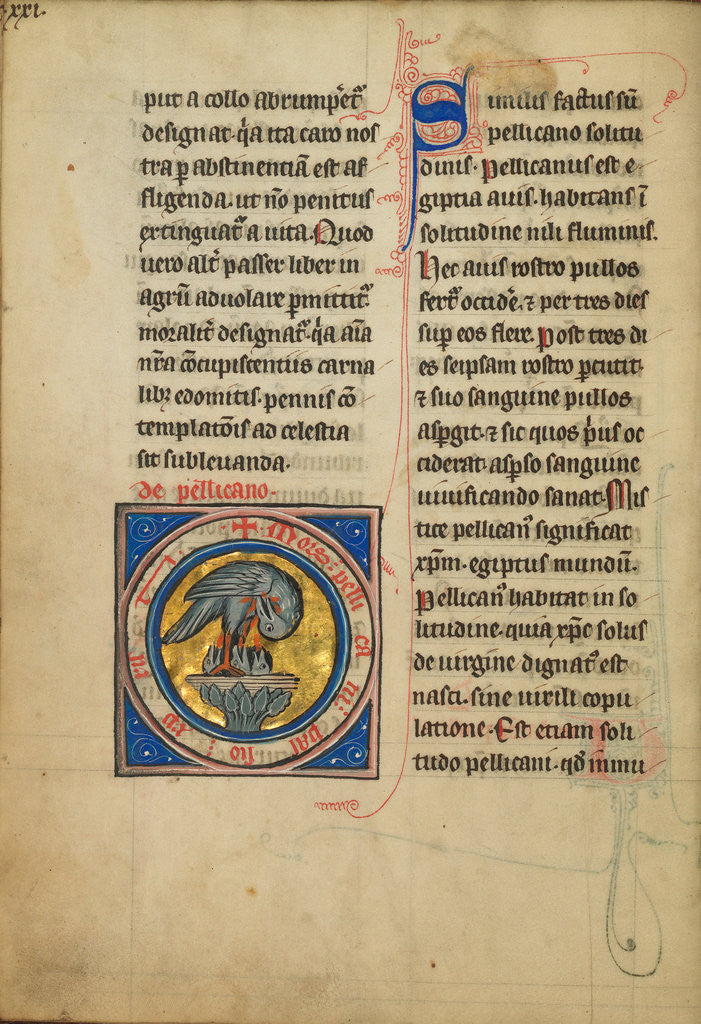 xxi.
put a collo abrump̄et᷑
designat· q̇a ita caro nos
tra ꝑ abstinentiā est af
fligenda· ut nō penitus
extinguat᷑ a uita. Quod
uero alt᷑ passer liber in
agrū aduolare ꝑmittit᷑
moralit᷑ designat᷑· q̇a aīa
nr̄a cōcupiscentiis carna
libꝫ edomitis· pennis cō
templatōis ad celestia
sit subleuanda·
de pellicano·
✝ Mors: pelli ca ni: pas sio: xp
Similis factus sū
pellicano solitu
dinis· Pellicanus est e
giptia auis· habitans ī
solitudine nili fluminis.
Hec auis rostro pullos
fert᷑ occidē. ⁊ per tres dies
suꝑ eos flere. Post tres di
es seipsam rostro ꝑcutit·
⁊ suo sanguine pullos
aspgit· ⁊ sic quos p̍us oc
ciderat· asꝑso sanguine
uiuificando sanat· Mis
tice pellican᷒ significat
xp̄m· egiptus mundū.
Pellican᷒ habitat in so
litudine· quia xp̄c solus
de uirgine dignat᷒ est
nasci· sine uirili copu
latione· Est etiam soli
tudo pellicani· qd̄ inmu